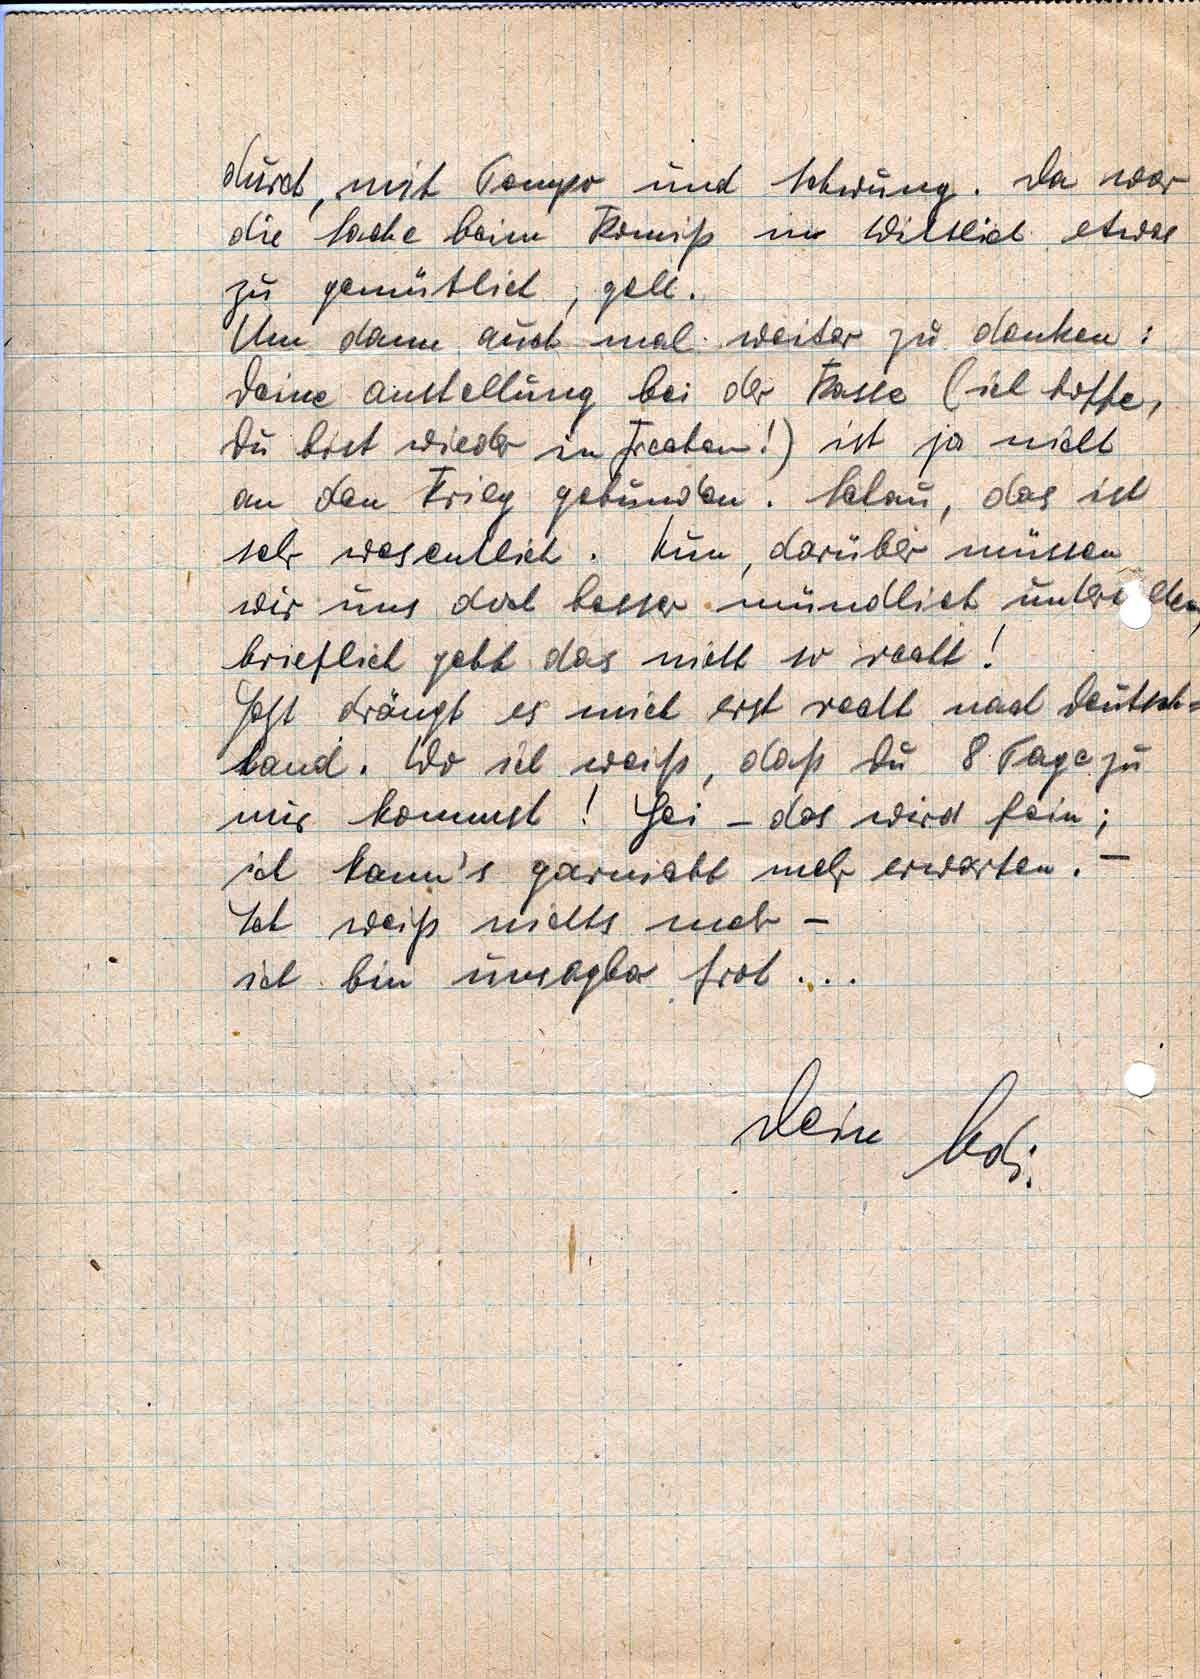 durch, mit Tempo und Schwung. Da war
die Sache beim Komiß in Wittlich etwas
zu gemütlich, gell.
Um dann auch mal weiter zu denken:
Deine Anstellung bei der Kasse (ich hoffe,
Du bist wieder in !) ist ja nicht
an den Krieg gebunden. Schau, das ist
sehr wesentlich. Nun, darüber müssen
wir uns doch besser mündlich unterhalten,
brieflich geht das nicht so recht!
Jetzt drängt es mich erst recht nach Deutsch=
land. Wo ich weiß, daß Du 8 Tage zu
mir kommst! Hei – das wird fein;
ich kann's garnicht mehr erwarten. –
Ich weiß nichts mehr –
ich bin unsagbar froh...
Dein